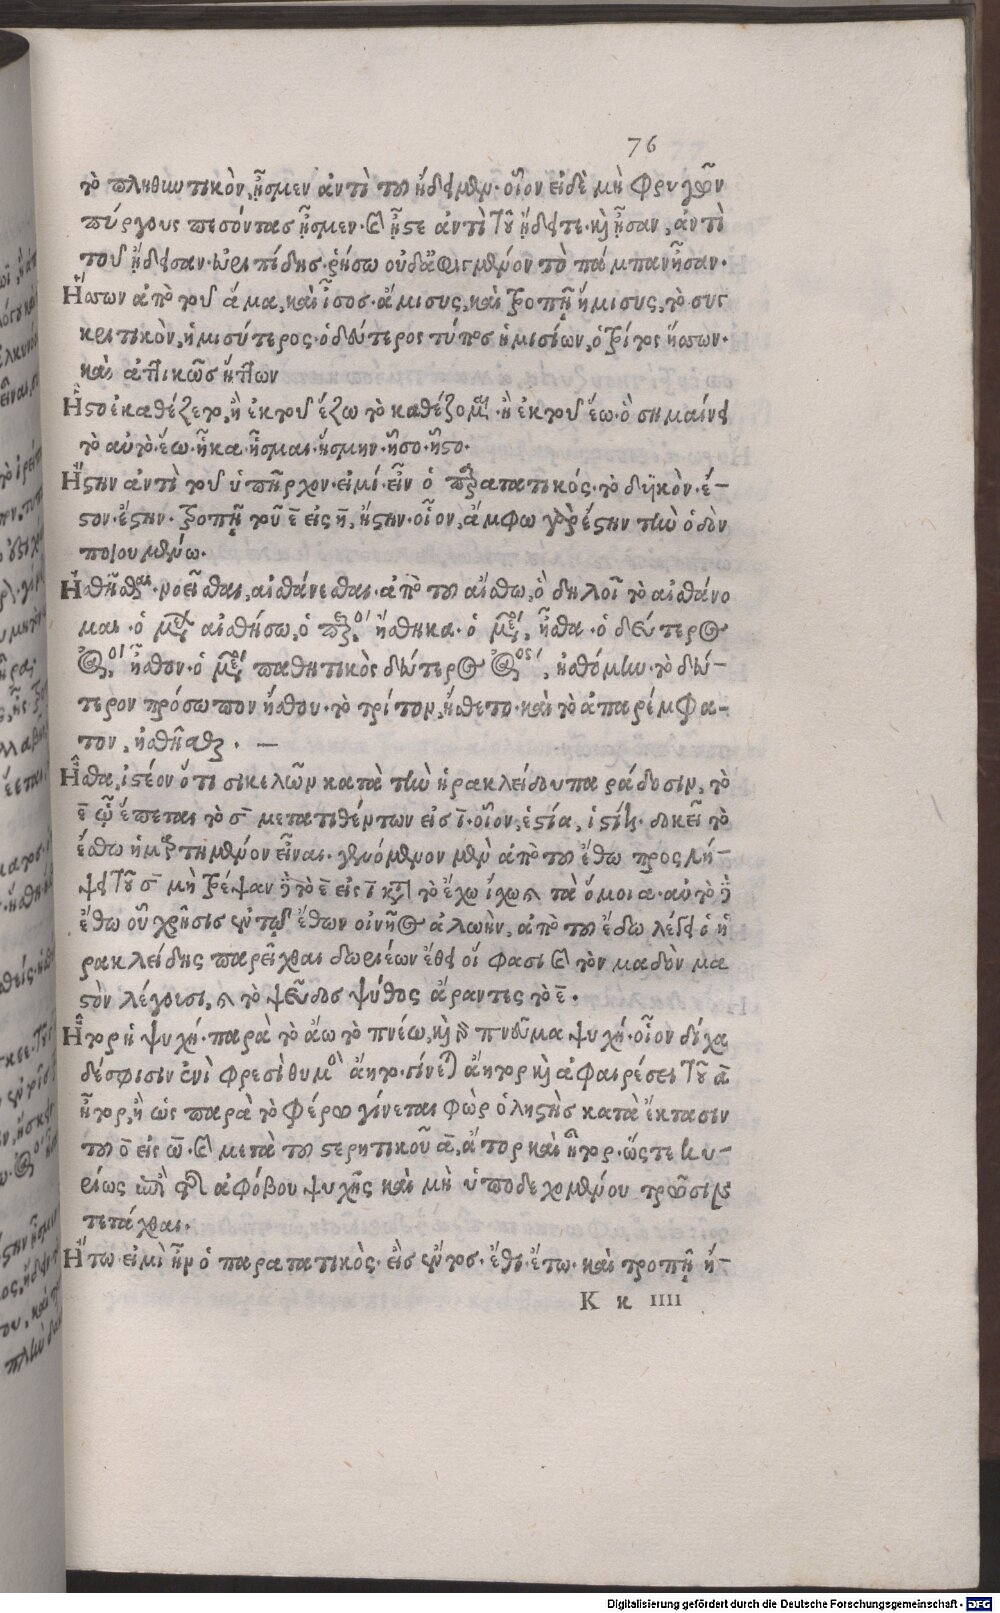 76
τὸ πληθυντικὸν, ᾔσμεν ἀντὶ τοῦ ᾔδειμεν· οἷον εἰδὲ μὴ φρυγῶν
πύργους πεσόντας ᾔσμεν· καὶ ᾖστε ἀντὶ τοῦ ᾔδειτε· καὶ ᾖσαν, ἀντὶ
τοῦ ᾔδεισαν· εὐριπίδης· ῥήσω οὐδ μένον τὸ πάμπαν ᾖσαν·
Ἥσσων ἀπὸ τοῦ ἅμα, καὶ ἴσος· ἅμισυς, καὶ τροπῇ ἥμισυς, τὸ συγ
κριτικὸν, ἡμισύτερος· ὁ δεύτερος τύπος ἡμισίων, ὁ τρίτος ἥσσων·
καὶ ἀττικῶς ἥττων
Ἧστο ἐκαθέζετο, ἢ ἐκ τοῦ ἕζω τὸ καθέζομαι· ἢ ἐκ τοῦ ἕω· ὃ σημαίνει
τὸ αὐτὸ· ἕω· ἧκα· ἧσμαι· ἥσμην· ἧσο· ἧστο·
Ἤστην ἀντὶ τοῦ ὑπῆρχον· εἰμί· εἶν ὁ παρατατικός· τὸ δυϊκὸν· ἔ-
στον· ἔστην· τροπῇ τοῦ ε εἰς η, ἤστην· οἷον, ἄμφω γὰρ ἔστην τὴν ὁδὸν
ποιουμένω·
Ἠσθῆσθαι· νοεῖσθαι, αἰσθάνεσθαι· ἀπὸ τοῦ αἴσθω, ὃ δηλοῖ τὸ αἰσθάνο
μαι· ὁ μέλλων αἰσθήσω, ὁ ᾔσθηκα· ὁ μέσος, ᾖσθα· ὁ δεύτερος
ἀόριστος ᾖσθον· ὁ μέσος παθητικὸς δεύτερος ἀόριστος, ᾐσθόμην· τὸ δεύ-
τερον πρόσωπον ᾔσθου· τὸ τρίτον, ᾔσθετο· καὶ τὸ ἀπαρέμφα-
τον, ᾐσθῆσθαι· —
Ἦσθα, ἰστέον ὅτι σικελῶν κατὰ τὴν ἡρακλείδου παράδοσιν, τὸ
ε ᾧ ἕπεται τὸ σ μετατιθέντων εἰς ι· οἷον, ἑστία, ἱστίη· δοκεῖ τὸ
ἔσθω ἡμαρτημένον εἶναι· γευόμενον μὲν ἀπὸ τοῦ ἔθω προςλή-
ψει τοῦ σ μὴ τρέψαν τὸ ε εἰς ι κατὰ τὸ ἔχω ἴσχω καὶ τὰ ὅμοια· αὐτὸ
ἔθω οὗ χρῆσις ἐν τῷ ἔθων οἰνῆος ἀλωὴν, ἀπὸ τοῦ ἔδω λέγει ὁ ἡ
ρακλείδης παρεῖχθαι δωριέων ἔθει οἵ φασι καὶ τὸν μαδὸν μα
σὸν λέγουσι, καὶ τὸ ψεῦδος ψύθος ἄραντες τὸ ε·
Ἦτορ ἡ ψυχή· παρὰ τὸ ἄω τὸ πνέω, καὶ πνεῦμα ψυχή· οἷον δίχα
δέ σφισιν ἐνὶ φρεσὶ θυμὸς ἄητο· γίνεται ἄητορ καὶ ἀφαιρέσει τοῦ α
ἦτορ, ἢ ὡς παρὰ τὸ φέρω γίνεται φὼρ ὁ λῃστὴς κατὰ ἔκτασιν
τοῦ ο εἰς ω· καὶ μετὰ τοῦ στερητικοῦ α, ἄτορ καὶ ἦτορ· ὥστε κυ-
ρίως ἐπὶ ἀφόβου ψυχῆς καὶ μὴ ὑποδεχομένου τρῶσιν
τετάχθαι·
Ἤτω εἰμὶ ἦν ὁ παρατατικὸς· εἰς ἔντος· ἔθι· ἔτω· καὶ τροπῇ ἤ-
K κ IIII
Digitalisierung gefördert durch die Deutsche Forschungsgemeinschaft - DFG